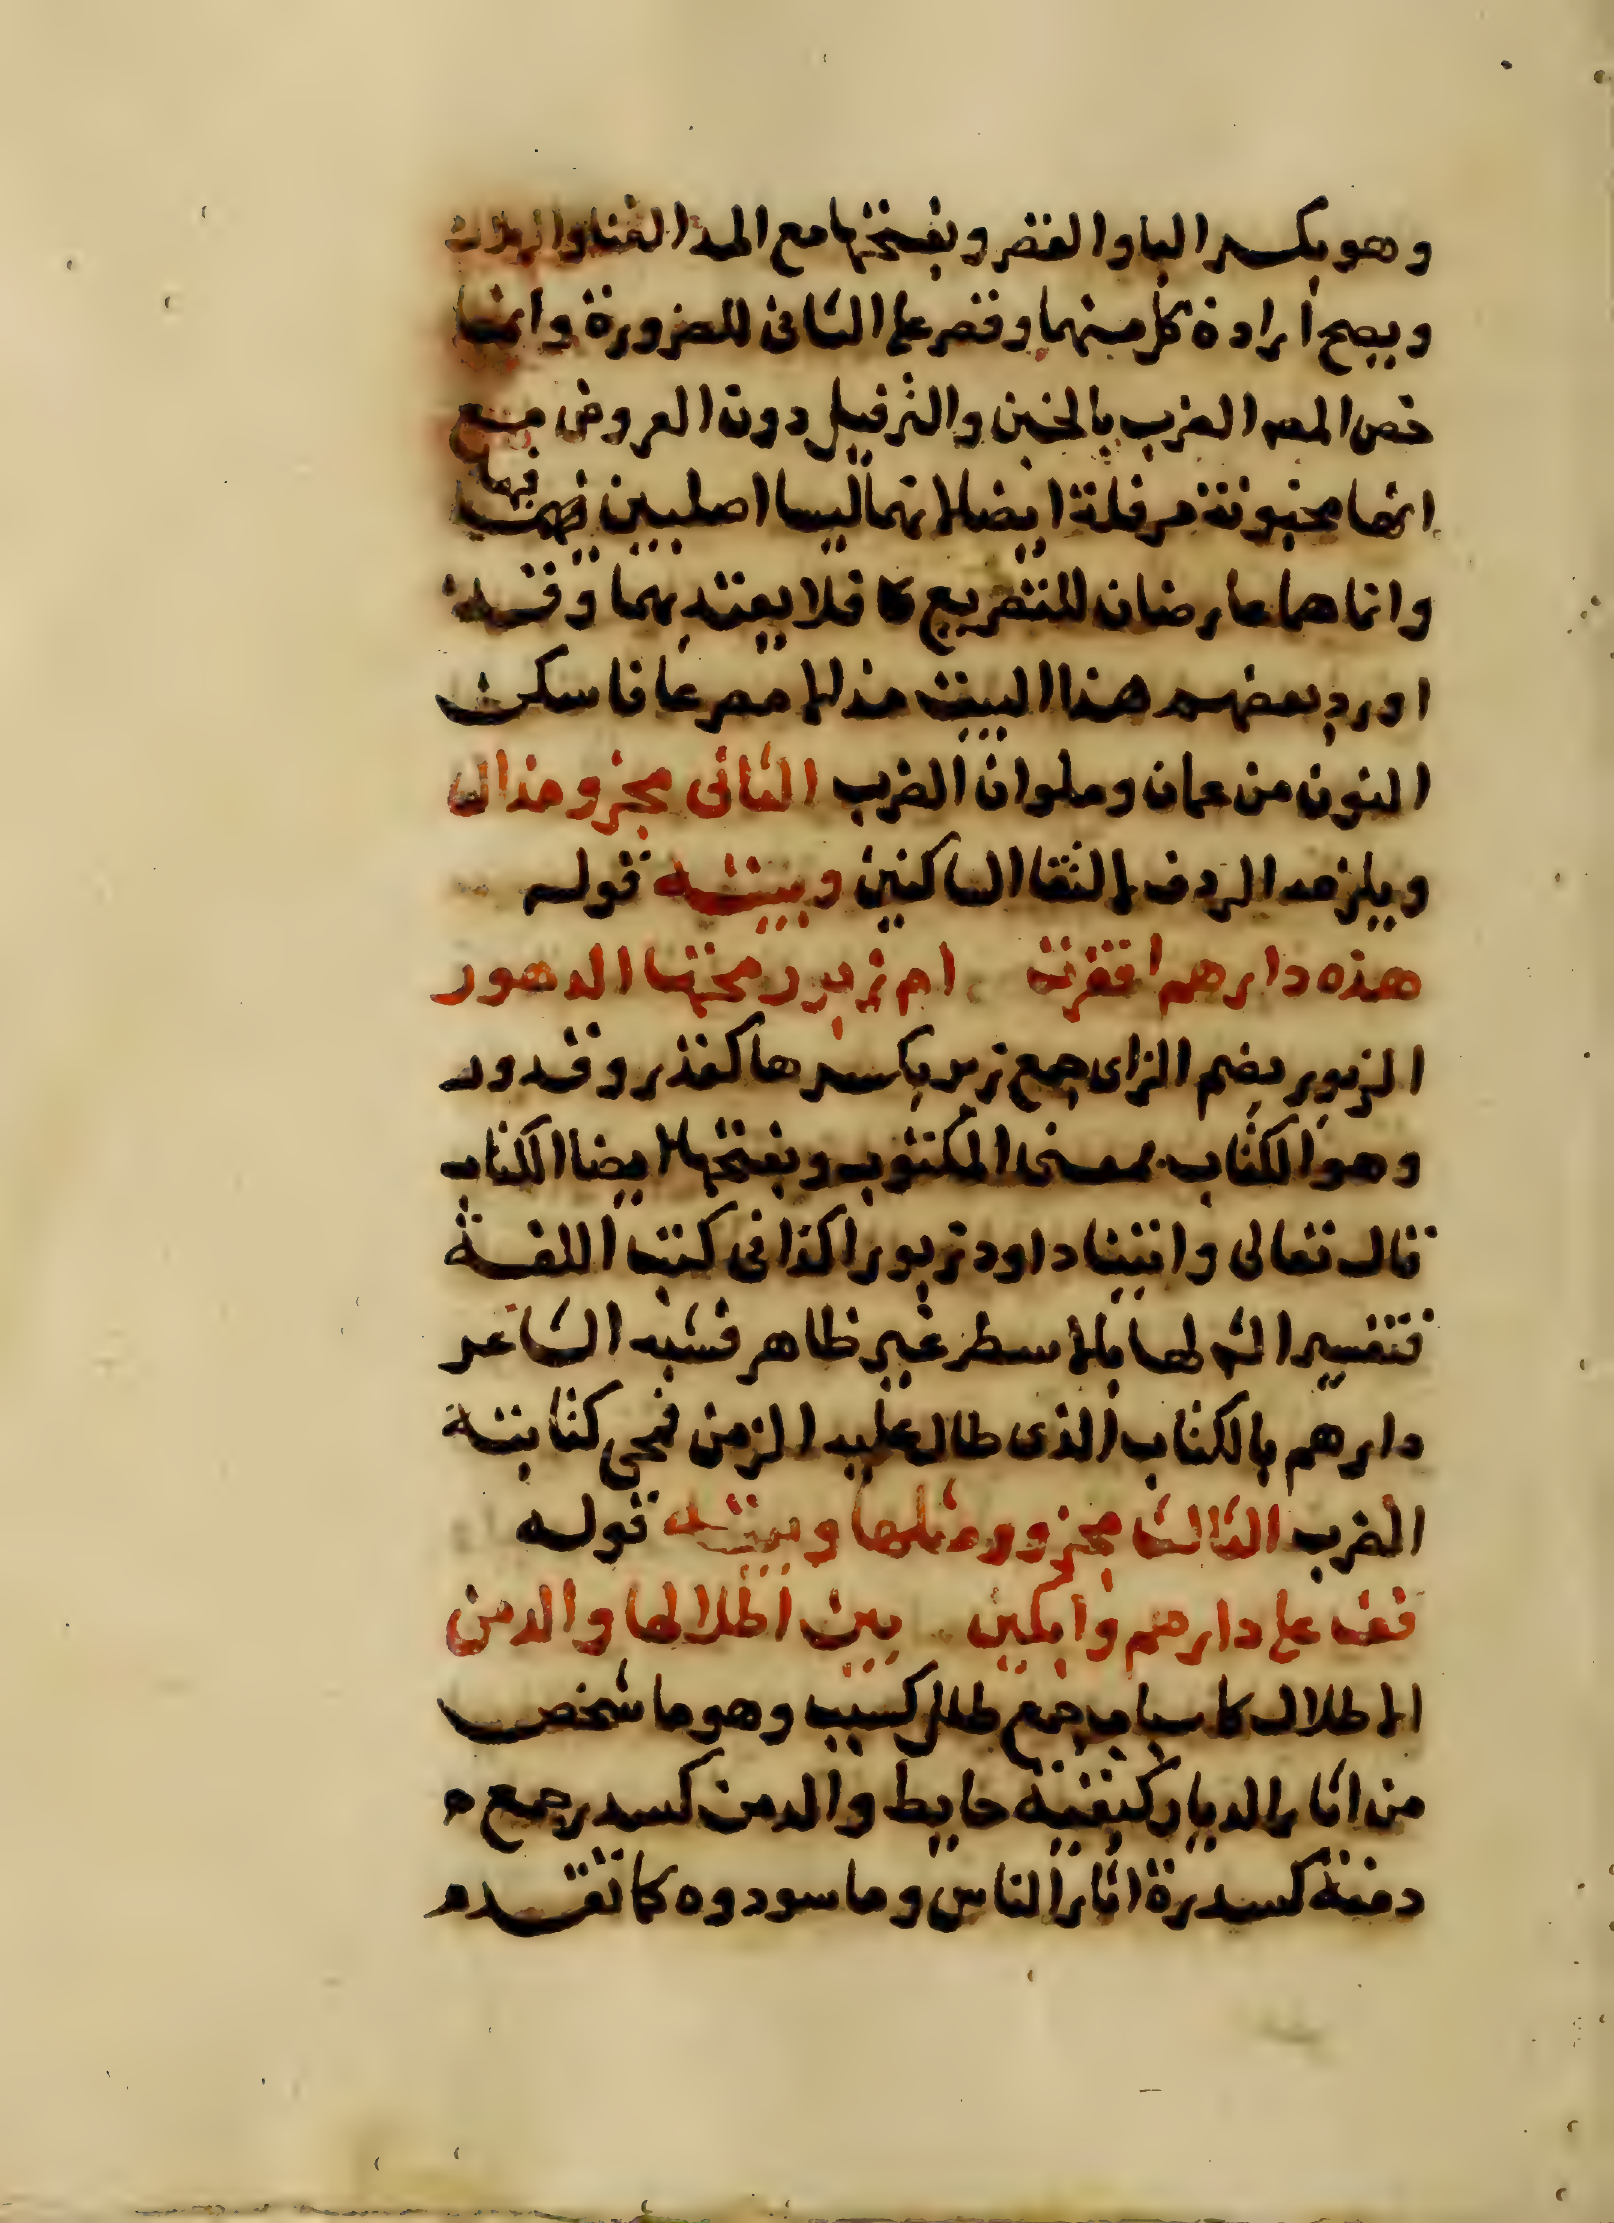 وهو بكسر البا والقصر وبفتحها مع المد الفنا والهلاك
ويصح ارادة كل منهما وقصر على الثانى للضرورة وانما
خص المصه الضرب بالخبن والترفيل دون العروض مع
انها مخبونة مرفلة ايضا لانهما ليسا اصليين فيها
وانما هما عارضان للتصريع كا فلا يعتد بهما وقد
اورد بعضهم هذا البيت مذالا مصرعا فاسكن
النون من عمان وملوان الضرب الثانى مجزو مذال
ويلزمه الردف لالتقا الساكنين وبيته قوله
هذه دارهم اقفرت ام زبور محتها الدهور
الزبور بضم الزاى جمع زبر بكسرها كقدر وقدور
وهو الكتاب بمعنى المكتوب وبفتحها ايضا الكتاب
قال تعالى واتينا داود زبورا كذا فى كتب اللغة
فتفسير الشر لها بالاسطر غير ظاهر فشبه الشاعر
دارهم بالكتاب الذى طال عليه الزمن فمحى كتابته
الضرب الثالث مجزوء مثلها وبيته قوله
قف على دارهم وابكين بين اطلالها والدمن
الاطلال كاسباب جمع طلل كسبب وهو ما شخص
من اثار الديار كبقية حايط والدمن كسدر جمع ه
دمنة كسدرة اثار الناس وما سودوه كما تقدم